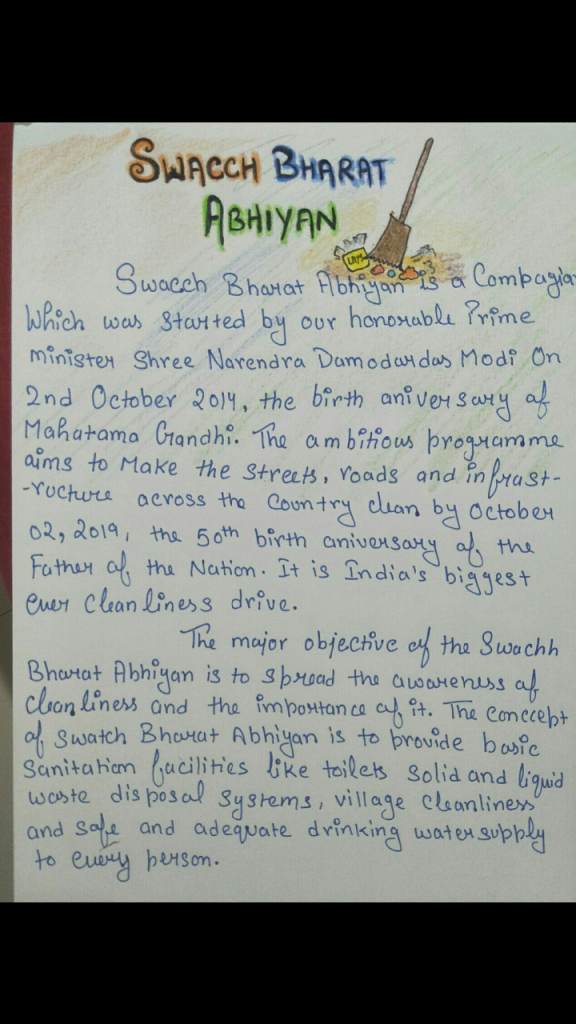 SWACCH BHARAT
ABHIYAN
LAYS
Swacch Bharat Abhiyan is a Compagian
Which was started by our honorable Prime
minister Shree Narendra Damodardas Modi On
2nd October 2014, the birth aniversary of
Mahatama Gandhi. The ambitious programme
aims to Make the streets, roads and infrast-
-ructure across the Country clean by October
02, 2019, the 50th birth aniversary of the
Father of the Nation. It is India's biggest
ever cleanliness drive.
The major objective of the Swachh
Bharat Abhiyan is to spread the awareness of
cleanliness and the importance of it. The conccept
of Swatch Bharat Abhiyan is to provide basic
Sanitation facilities like toilets solid and liquid
waste disposal systems, village cleanliness
and safe and adequate drinking water supply
to every person.